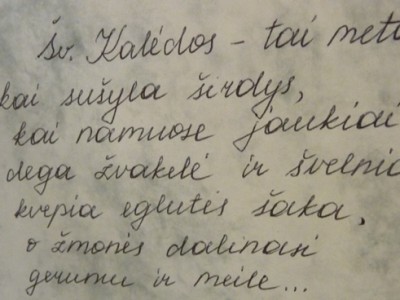 Šv. Kalėdos - tai meta
kai sušyla širdys,
kai namuose jaukiai
dega žvakelė ir švelnia
kvepia eglutės šaka,
o žmonės dalinasi
gerumu ir meile...